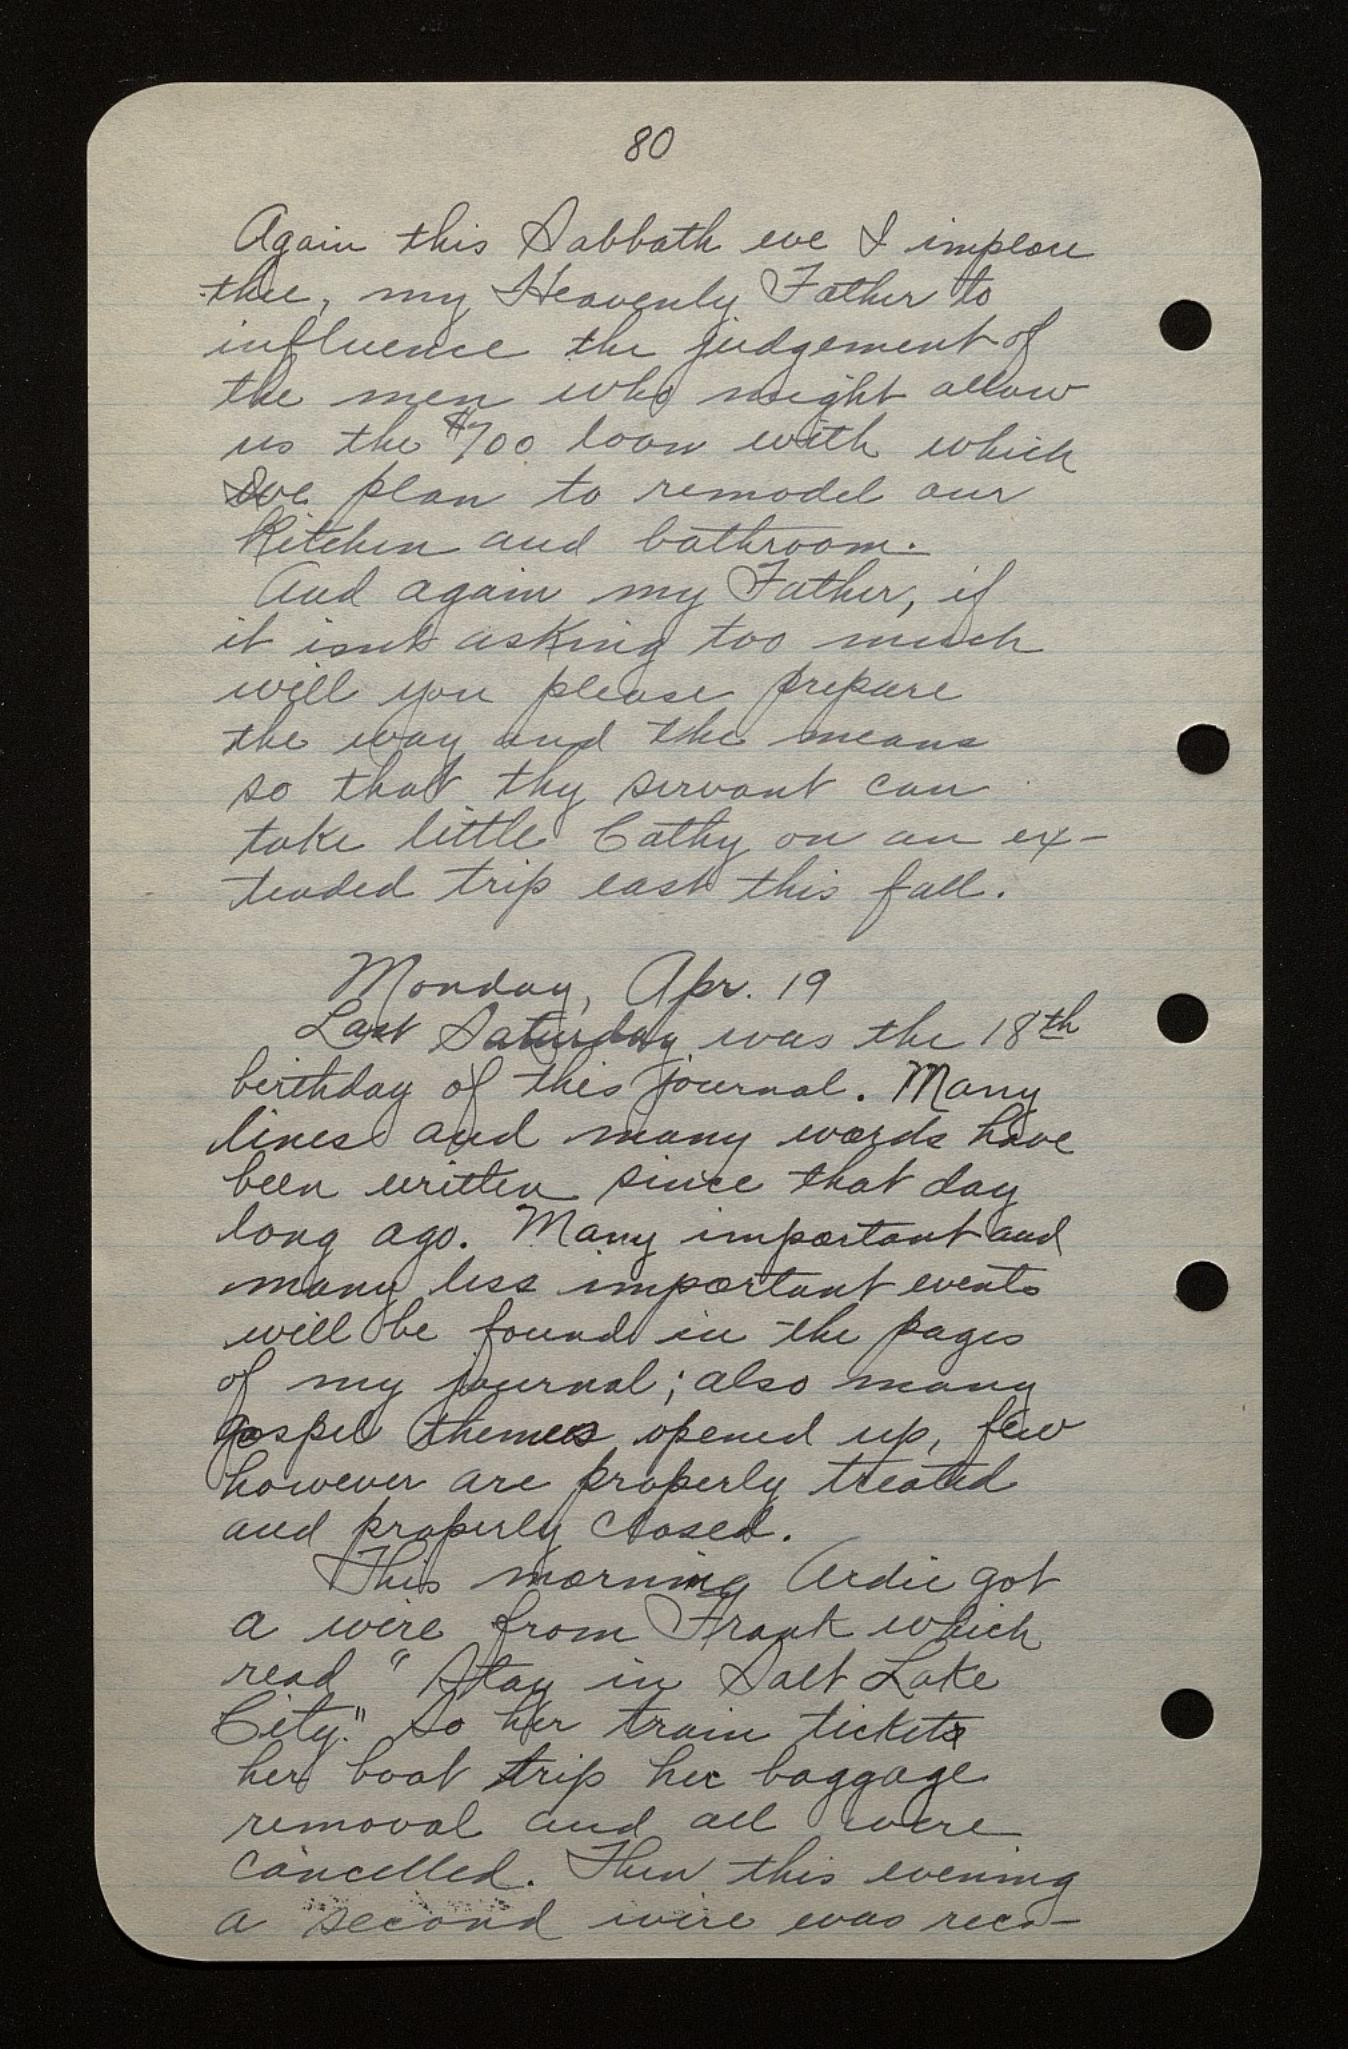 80
Again this Sabbath eve I implore
thee, my Heavenly Father to
influence the judgement of
the men who might allow
us the $700 loan with which
we plan to remodel our
Kitchen and bathroom.
And again my Father, if
it isnt asking too much
will you please prepare
the way and the means
so that thy servant can
take little Cathy on an ex-
tended trip east this fall.
Monday, Apr. 19
Last Saturday was the 18th
birthday of this journal. Many
lines and many words have
been written since that day
long ago. Many important and
many less important events
will be found in the pages
of my journal; also many
gospel themes opened up, few
however are properly treated
and properly closed.
This morning Ardie got
a wire from Frank which
read "Stay in Salt Lake
City." So her train tickets
her boat trip her baggage
removal and all were
cancelled. Then this evening
a second wire was rece-